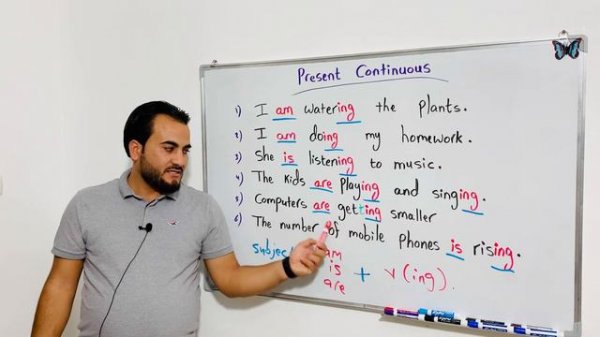 Present Continuous
1) I am watering the plants.
2) I am doing my homework.
3) She is listening to music.
4) The kids are playing and singing.
5) Computers are getting smaller
6) The number of mobile phones is rising.
am
is
are + v(ing).